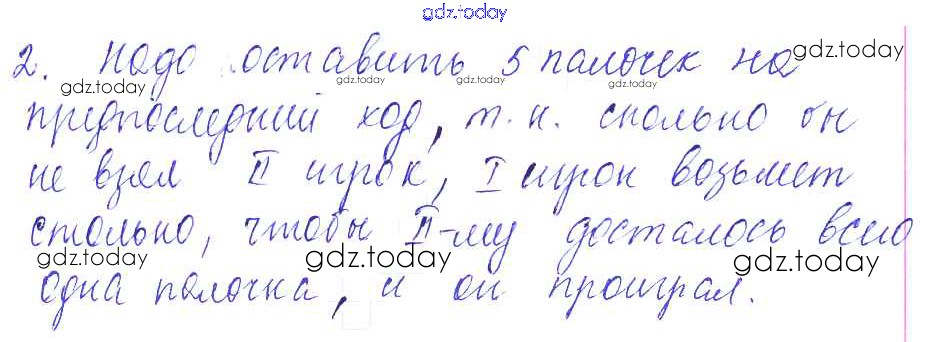 gdz.today
2. Надо оставить 5 палочек на
gdz.today gdz.today gdz.today gdz.today gdz.today
предпоследний ход, т.к. сколько бы
не взял II игрок, I игрок возьмет
столько, чтобы II-му досталось всего
gdz.today gdz.today gdz.today
одна палочка, и он проиграл.